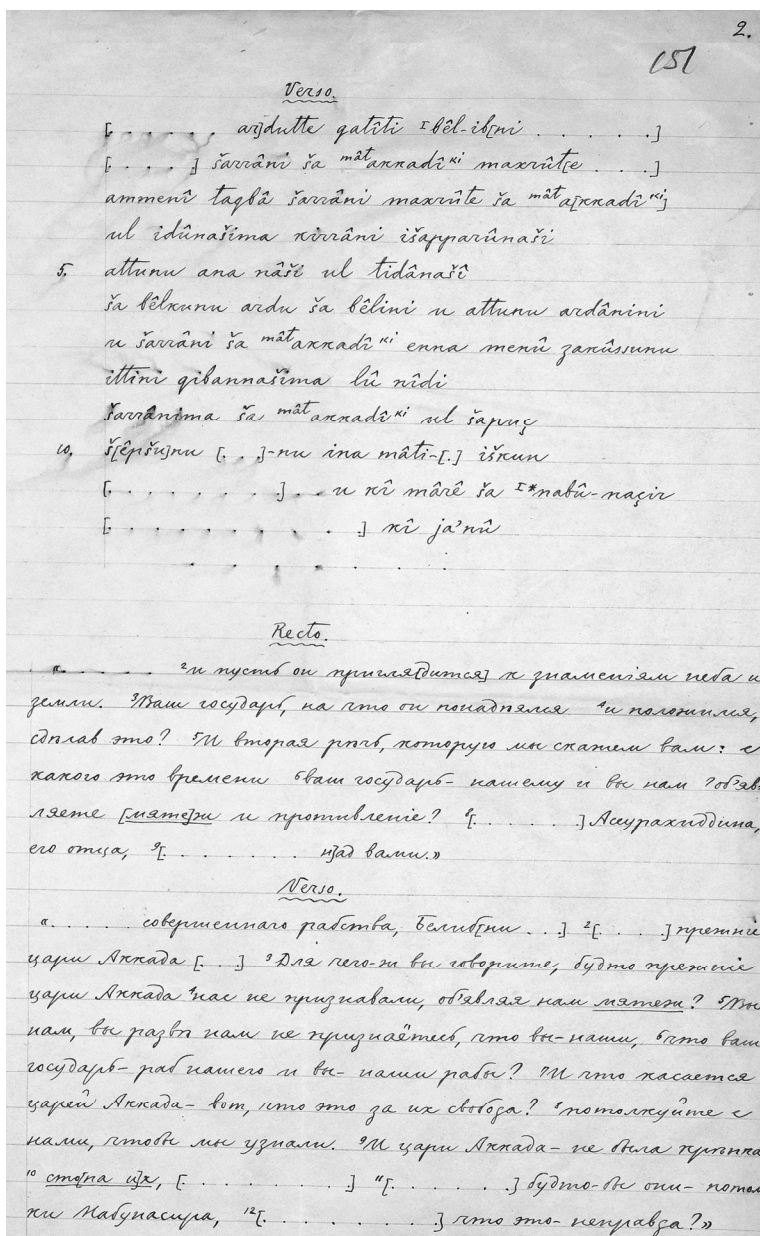 2.
151
Verso.
[. . . . . . ar]dutte gatîti ᴵbêl-ib[ni . . . . . .]
[. . . .] šarrâni ša ᵐᵃ̂ᵗakkadî ᵏⁱ maxrût[e . . . .]
ammenî taqbâ šarrâni maxrûte ša ᵐᵃ̂ᵗa[kkadî ᵏⁱ]
ul idûnašima kirrâni išapparûnaši
5. attunu ana nâši ul tidânašî
ša bêlkunu ardu ša bêlini u attunu ardânini
u šarrâni ša ᵐᵃ̂ᵗakkadî ᵏⁱ enna menû zakûssunu
ittini qibannašima lû nîdi
šarrânima ša ᵐᵃ̂ᵗakkadî ᵏⁱ ul šapuç
10. š[êpšu]nu [. . .]-nu ina mâti-[.] iškun
[. . . . . . . .] . . u kî mârê ša ᴵ*nabû-naçir
[. . . . . . . . . .] kî ja’nû
. . . . . . .
Recto.
«. . . . . . ²и пусть он пригля[дится] к знаменiям неба и
земли. ³Ваш государь, на что он понадѣялся ⁴и положился,
сдѣлав это? ⁵И вторая рѣчь, которую мы скажем вам: с
какого это времени ⁶ваш государь- нашему и вы нам ⁷об’яв-
ляете [мяте]ж и противленiе? ⁸[. . . . . . .] Асурахиддина,
его отца, ⁹[. . . . . . . н]ад вами.»
Verso.
«. . . . . . совершеннаго рабства, Белиб[ни . . .] ²[. . . .] прежнiе
цари Аккада [. . .] ³Для чего-ж вы говорите, будто прежнiе
цари Аккада ⁴нас не признавали, об’являя нам мятеж? ⁵Вы
нам, вы развѣ нам не признаётесь, что вы- наши, ⁶что ваш
государь- раб нашего и вы- наши рабы? ⁷И что касается
царей Аккада- вот, что это за их свобода? ⁸потолкуйте с
нами, чтобы мы узнали. ⁹И цари Аккада- не была крѣпка
¹⁰ сто[па и]х, [. . . . . . . . .] ¹¹[. . . . . . .] будто-бы они- потом
ки Набунасира, ¹²[. . . . . . . . .] что это- неправда?»